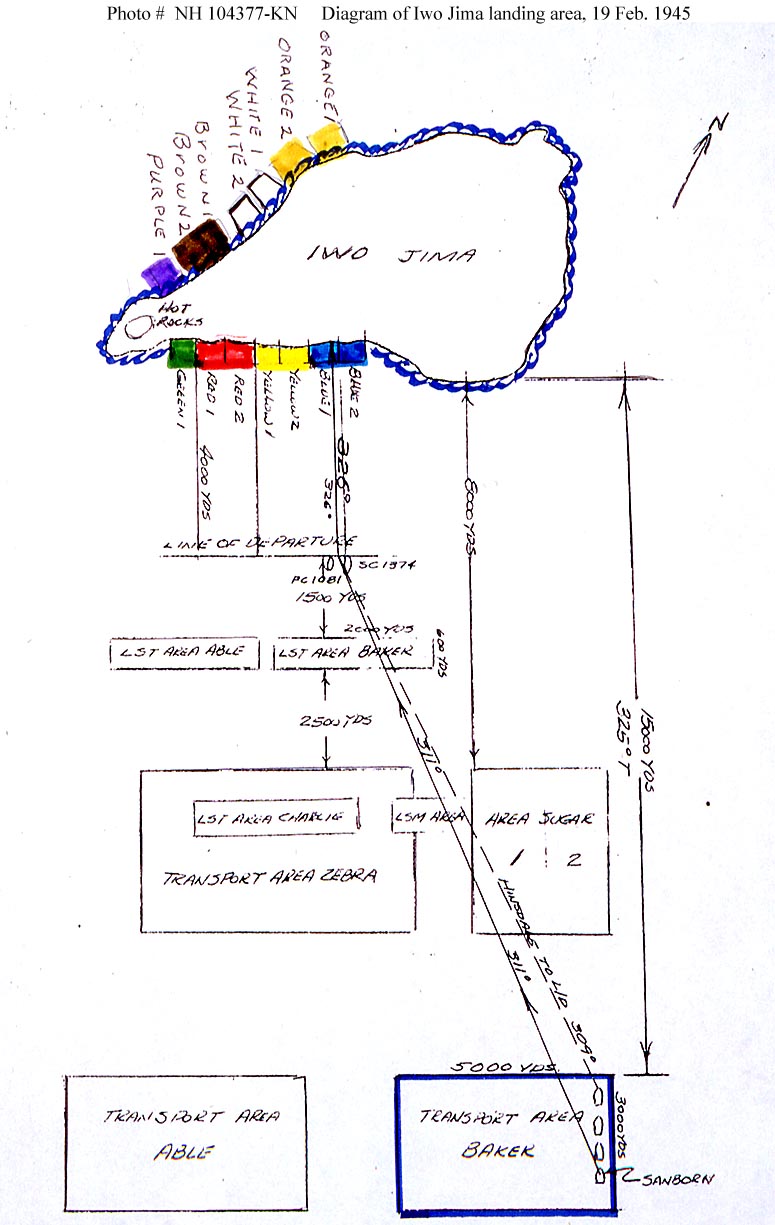 Photo #  NH 104377-KN     Diagram of Iwo Jima landing area, 19 Feb. 1945
ORANGE 1
ORANGE 2
WHITE 1
WHITE 2
BROWN 1
BROWN 2
PURPLE 1
N
IWO JIMA
HOT
ROCKS
GREEN 1
RED 1
RED 2
YELLOW 1
YELLOW 2
BLUE 1
BLUE 2
4000 YDS
326°
326°
8000 YDS
LINE OF DEPARTURE
PC1081
SC1374
1500 YDS
2000 YDS
600 YDS
LST AREA ABLE
LST AREA BAKER
2500 YDS
311°
15000 YDS
325° T
LST AREA CHARLIE
LSM AREA
AREA SUGAR
1 2
TRANSPORT AREA ZEBRA
HINSDALE TO L/D 309°
311°
5000 YDS
3000 YDS
TRANSPORT AREA
ABLE
TRANSPORT AREA
BAKER
SANBORN